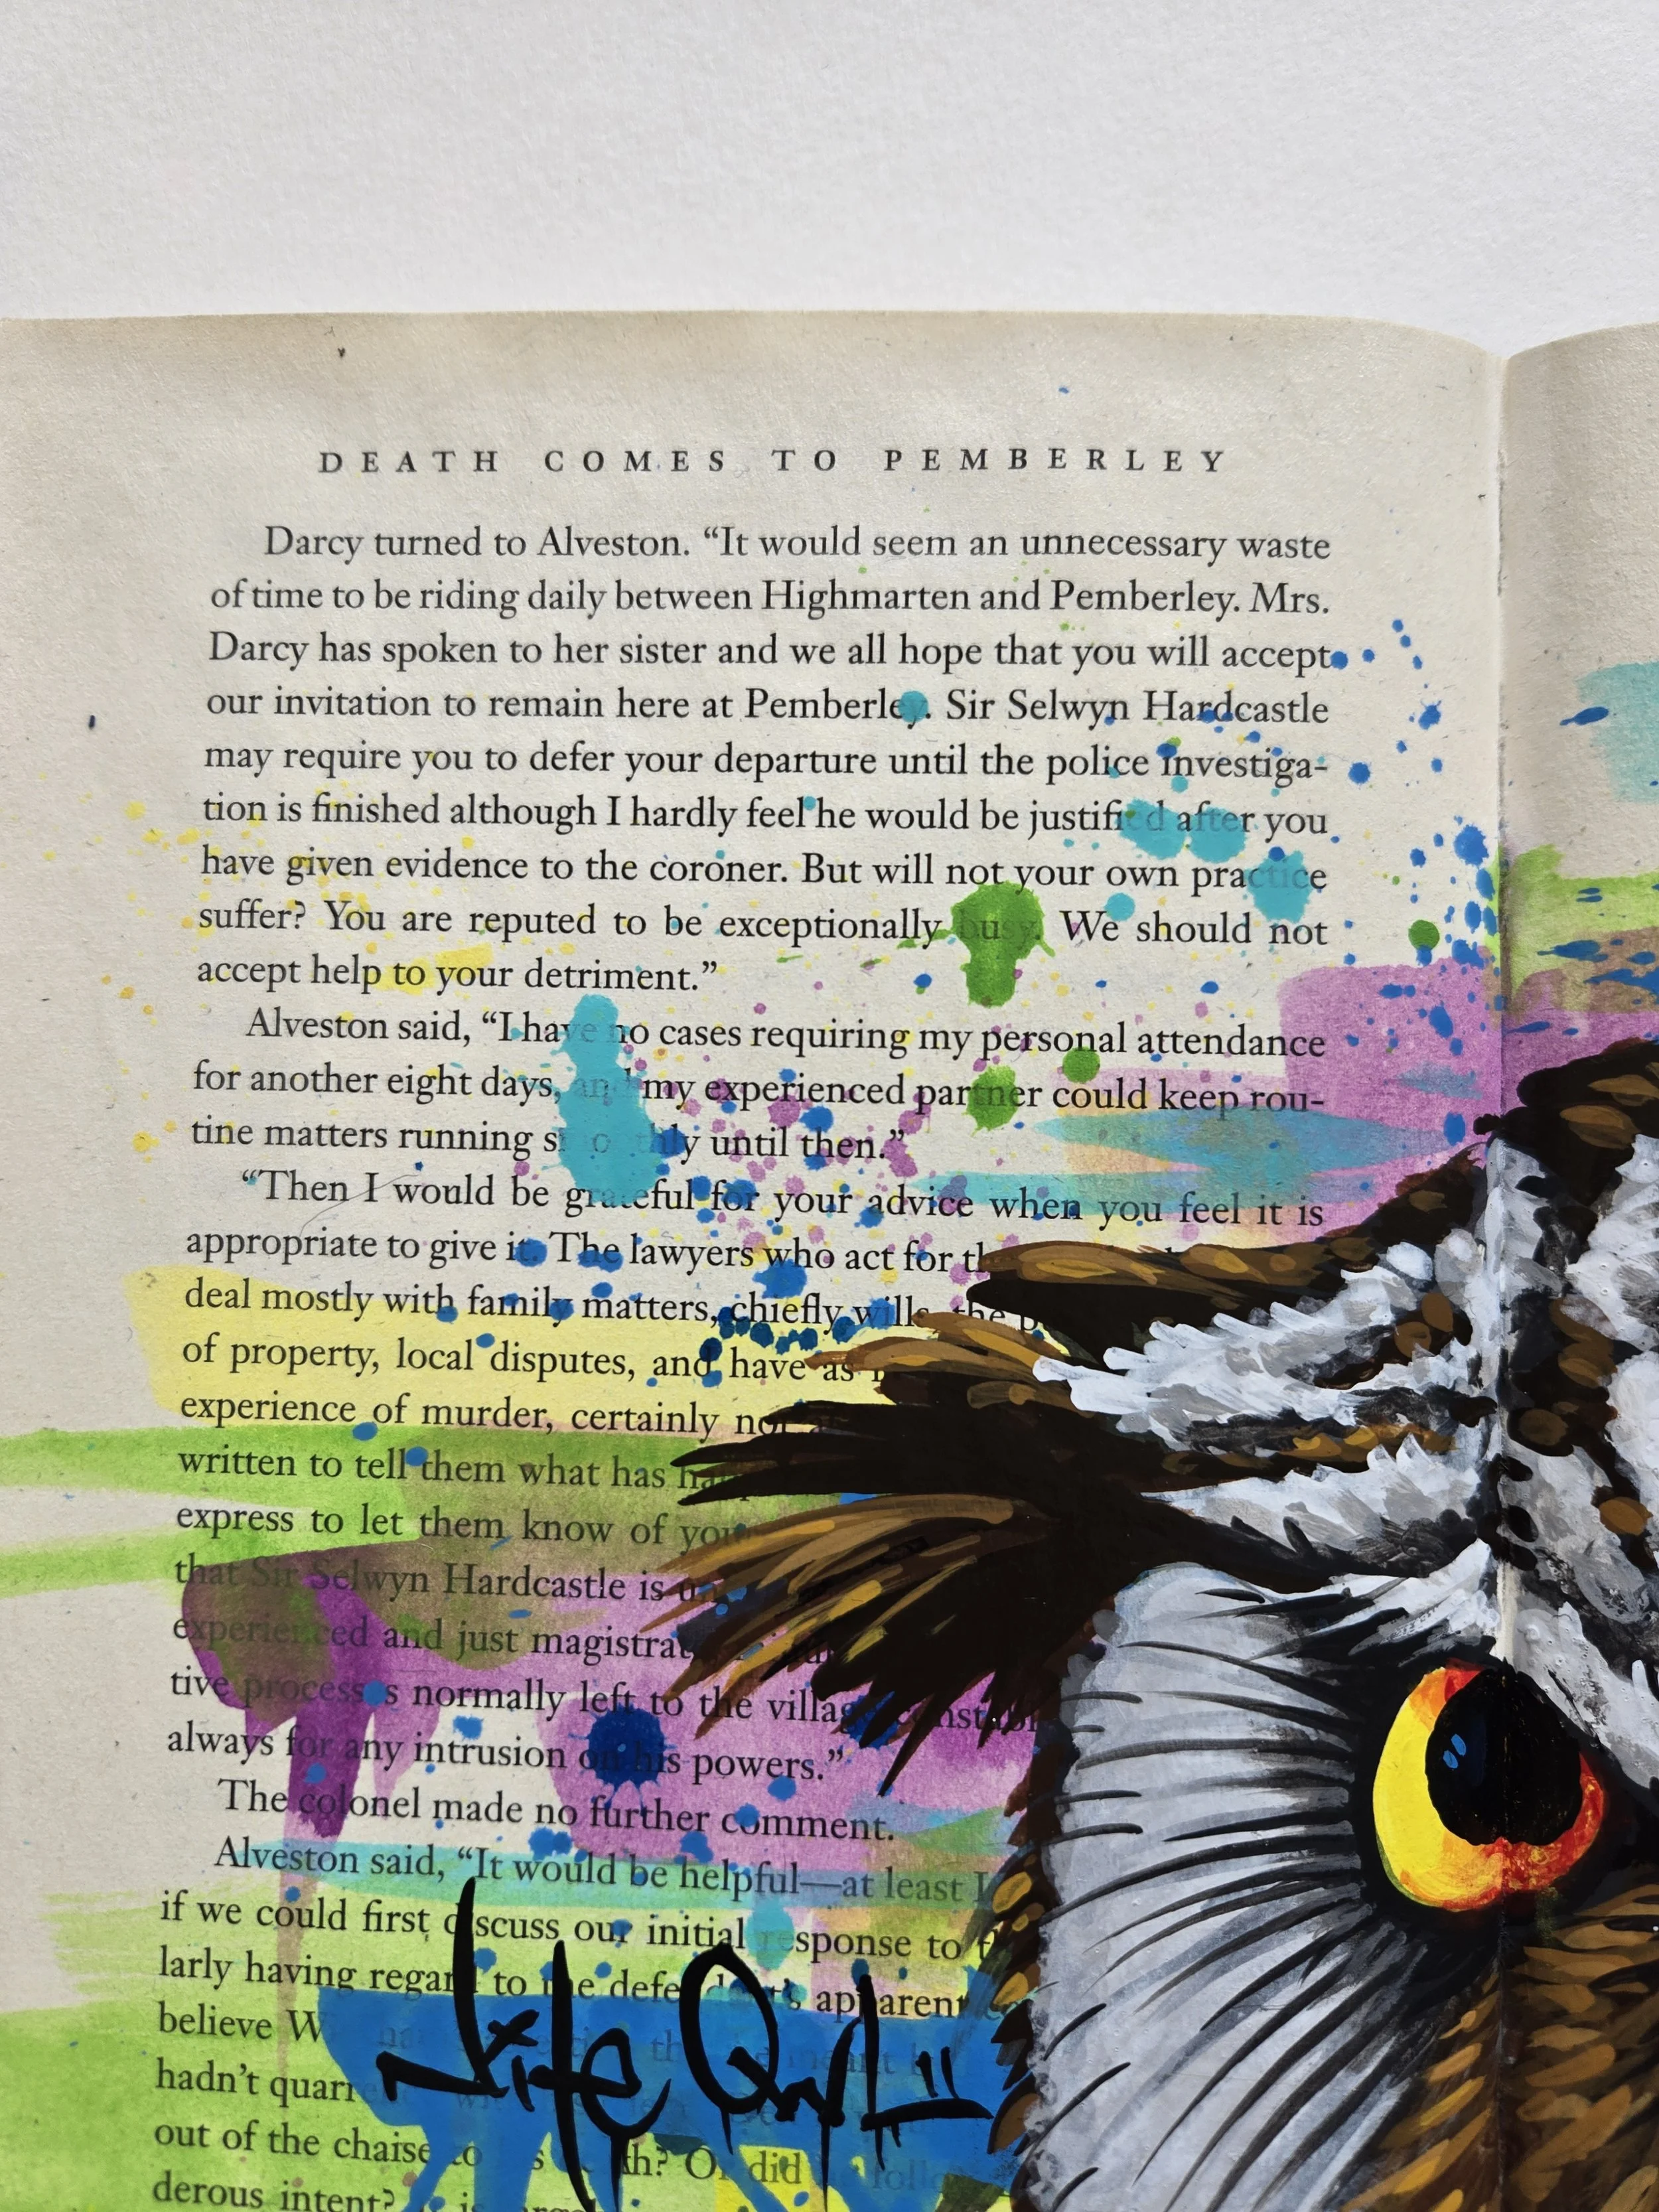 DEATH COMES TO PEMBERLEY
Darcy turned to Alveston. “It would seem an unnecessary waste
of time to be riding daily between Highmarten and Pemberley. Mrs.
Darcy has spoken to her sister and we all hope that you will accept
our invitation to remain here at Pemberley. Sir Selwyn Hardcastle
may require you to defer your departure until the police investiga-
tion is finished although I hardly feel he would be justified after you
have given evidence to the coroner. But will not your own practice
suffer? You are reputed to be exceptionally busy. We should not
accept help to your detriment.”
Alveston said, “I have no cases requiring my personal attendance
for another eight days, and my experienced partner could keep rou-
tine matters running smoothly until then.”
“Then I would be grateful for your advice when you feel it is
appropriate to give it. The lawyers who act for
deal mostly with family matters, chiefly wills, the
of property, local disputes, and have as
experience of murder, certainly not
written to tell them what has
express to let them know of
that Sir Selwyn Hardcastle is
experienced and just
tive processes normally left to the village constable
always for any intrusion on his powers.”
The colonel made no further comment.
Alveston said, “It would be helpful—at least I
if we could first discuss our initial response to
larly having regard to the defendant’s apparent
believe
hadn’t
out of the chaise to did
derous intent?
Nite Owl